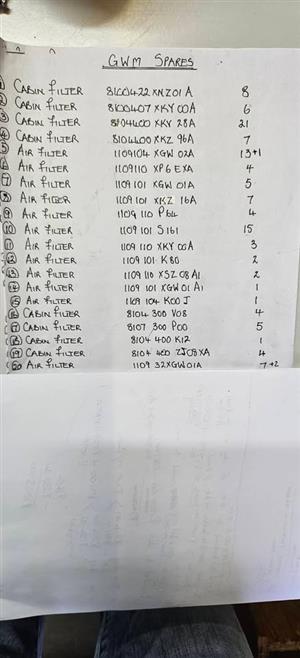 GWM SPARES
① CABIN FILTER 8100422 XNZ01A 8
② CABIN FILTER 8100407 XKY00A 6
③ CABIN FILTER 8104400 XKY 28A 21
④ CABIN FILTER 8104400 XKZ 96A 7
⑤ AIR FILTER 1109104 XGW 02A 13+1
⑥ AIR FILTER 1109110 XP6EXA 4
⑦ AIR FILTER 1109 101 XGW 01A 5
⑧ AIR FILTER 1109101 XKZ 16A 7
⑨ AIR FILTER 1109 110 P64 4
⑩ AIR FILTER 1109 101 S161 15
⑪ AIR FILTER 1109 110 XKY 00A 3
⑫ AIR FILTER 1109 101 K80 2
⑬ AIR FILTER 1109 110 XSZ 08A1 2
⑭ AIR FILTER 1109 101 XGW 01 A1 1
⑮ AIR FILTER 1109 104 K00 J 1
⑯ CABIN FILTER 8104 300 V08 4
⑰ CABIN FILTER 8107 300 P00 5
⑱ CABIN FILTER 8104 400 K12 1
⑲ CABIN FILTER 8104 400 ZJ08XA 4
⑳ AIR FILTER 1109 32XGW01A 7+2